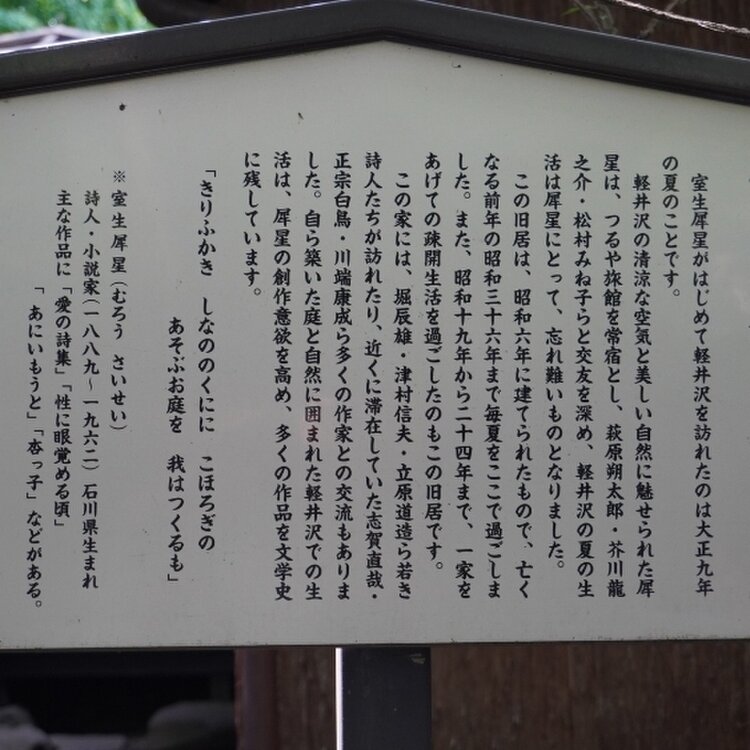 室生犀星がはじめて軽井沢を訪れたのは大正九年
の夏のことです。
軽井沢の清涼な空気と美しい自然に魅せられた犀
星は、つるや旅館を常宿とし、萩原朔太郎・芥川龍
之介・松村みね子らと交友を深め、軽井沢の夏の生
活は犀星にとって、忘れ難いものとなりました。
この旧居は、昭和六年に建てられたもので、亡く
なる前年の昭和三十六年まで毎夏をここで過ごしま
した。また、昭和十九年から二十四年まで、一家を
あげての疎開生活を過ごしたのもこの旧居です。
この家には、堀辰雄・津村信夫・立原道造ら若き
詩人たちが訪れたり、近くに滞在していた志賀直哉・
正宗白鳥・川端康成ら多くの作家との交流もありま
した。自ら築いた庭と自然に囲まれた軽井沢での生
活は、犀星の創作意欲を高め、多くの作品を文学史
に残しています。
「きりふかき　しなののくにに　こほろぎの
あそぶお庭を　我はつくるも」
※室生犀星（むろう　さいせい）
詩人・小説家（一八八九～一九六二）石川県生まれ
主な作品に「愛の詩集」「性に眼覚める頃」
「あにいもうと」「杏っ子」などがある。